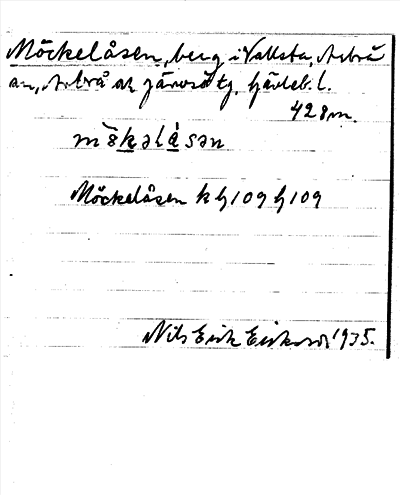 Möckelåsen, berg i Vallsta, Arbrå
sn, Arbrå ok Järvsö tg. Gävleb. l.
428 m.
mö̀kəlå̀sən
Möckelåsen k h 109 h 109
Nils Erik Eriksson 1935.